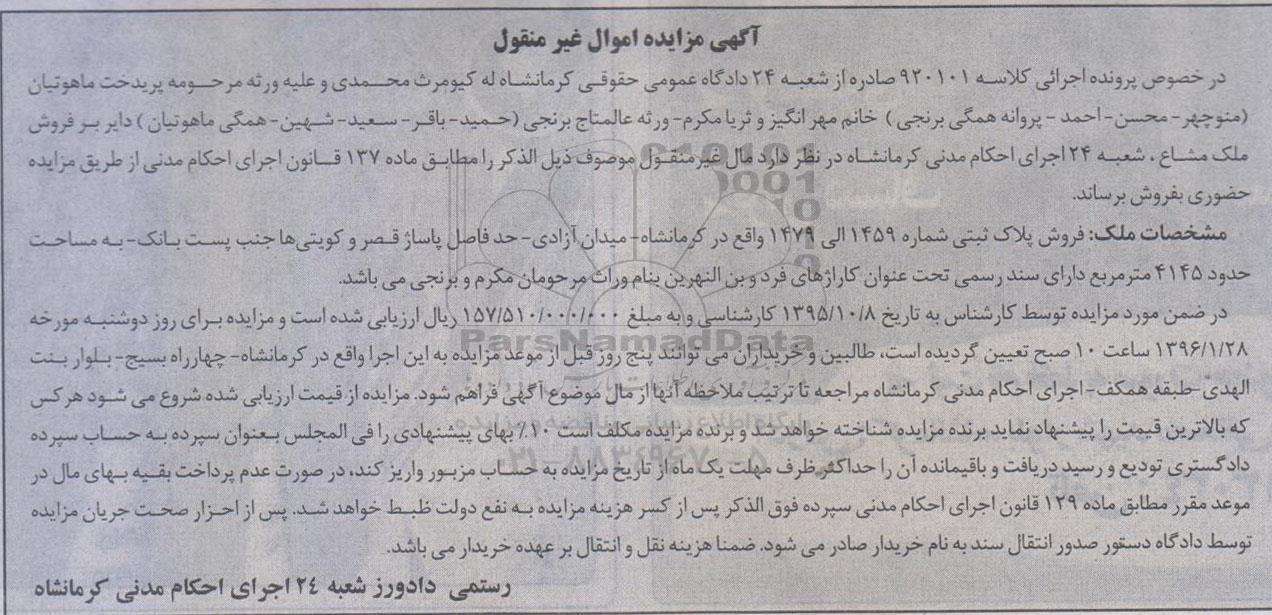 آگهی مزایده اموال غیر منقول
در خصوص پرونده اجرائی کلاسه ۹۲۰۱۰۱ صادره از شعبه ۲۴ دادگاه عمومی حقوقی کرمانشاه له کیومرث محمدی و علیه ورثه مرحومه پریدخت ماهوتیان
(منوچهر- محسن- احمد - پروانه همگی برنجی ) خانم مهر انگیز و ثریا مکرم- ورثه عالمتاج برنجی (حمید- باقر- سعید- شهین- همگی ماهوتیان ) دایر بر فروش
ملک مشاع ، شعبه ۲۴ اجرای احکام مدنی کرمانشاه در نظر دارد مال غیر منقول موصوف ذیل الذکر را مطابق ماده ۱۳۷ قانون اجرای احکام مدنی از طریق مزایده
حضوری بفروش برساند.
مشخصات ملک: فروش پلاک ثبتی شماره ۱۴۵۹ الی ۱۴۷۹ واقع در کرمانشاه- میدان آزادی- حد فاصل پاساژ قصر و کویتی‌ها جنب پست بانک- به مساحت
حدود ۴۱۴۵ مترمربع دارای سند رسمی تحت عنوان کاراژهای فرد و بن النهرین بنام وراث مرحومان مکرم و برنجی می باشد.
در ضمن مورد مزایده توسط کارشناس به تاریخ ۱۳۹۵/۱۰/۸ کارشناسی و به مبلغ ۱۵۷/۵۱۰/۰۰۰/۰۰۰ ریال ارزیابی شده است و مزایده برای روز دوشنبه مورخه
۱۳۹۶/۱/۲۸ ساعت ۱۰ صبح تعیین گردیده است، طالبین و خریداران می توانند پنج روز قبل از موعد مزایده به این اجرا واقع در کرمانشاه- چهارراه بسیج- بلوار بنت
الهدی-طبقه همکف- اجرای احکام مدنی کرمانشاه مراجعه تا ترتیب ملاحظه آنها از مال موضوع آگهی فراهم شود. مزایده از قیمت ارزیابی شده شروع می شود هر کس
که بالاترین قیمت را پیشنهاد نماید برنده مزایده شناخته خواهد شد و برنده مزایده مکلف است ۱۰٪ بهای پیشنهادی را فی المجلس بعنوان سپرده به حساب سپرده
دادگستری تودیع و رسید دریافت و باقیمانده آن را حداکثر ظرف مهلت یک ماه از تاریخ مزایده به حساب مزبور واریز کند، در صورت عدم پرداخت بقیه بهای مال در
موعد مقرر مطابق ماده ۱۲۹ قانون اجرای احکام مدنی سپرده فوق الذکر پس از کسر هزینه مزایده به نفع دولت ظبط خواهد شد. پس از احزار صحت جریان مزایده
توسط دادگاه دستور صدور انتقال سند به نام خریدار صادر می شود. ضمنا هزینه نقل و انتقال بر عهده خریدار می باشد.
رستمی دادورز شعبه ۲۴ اجرای احکام مدنی کرمانشاه
ParsNamadData